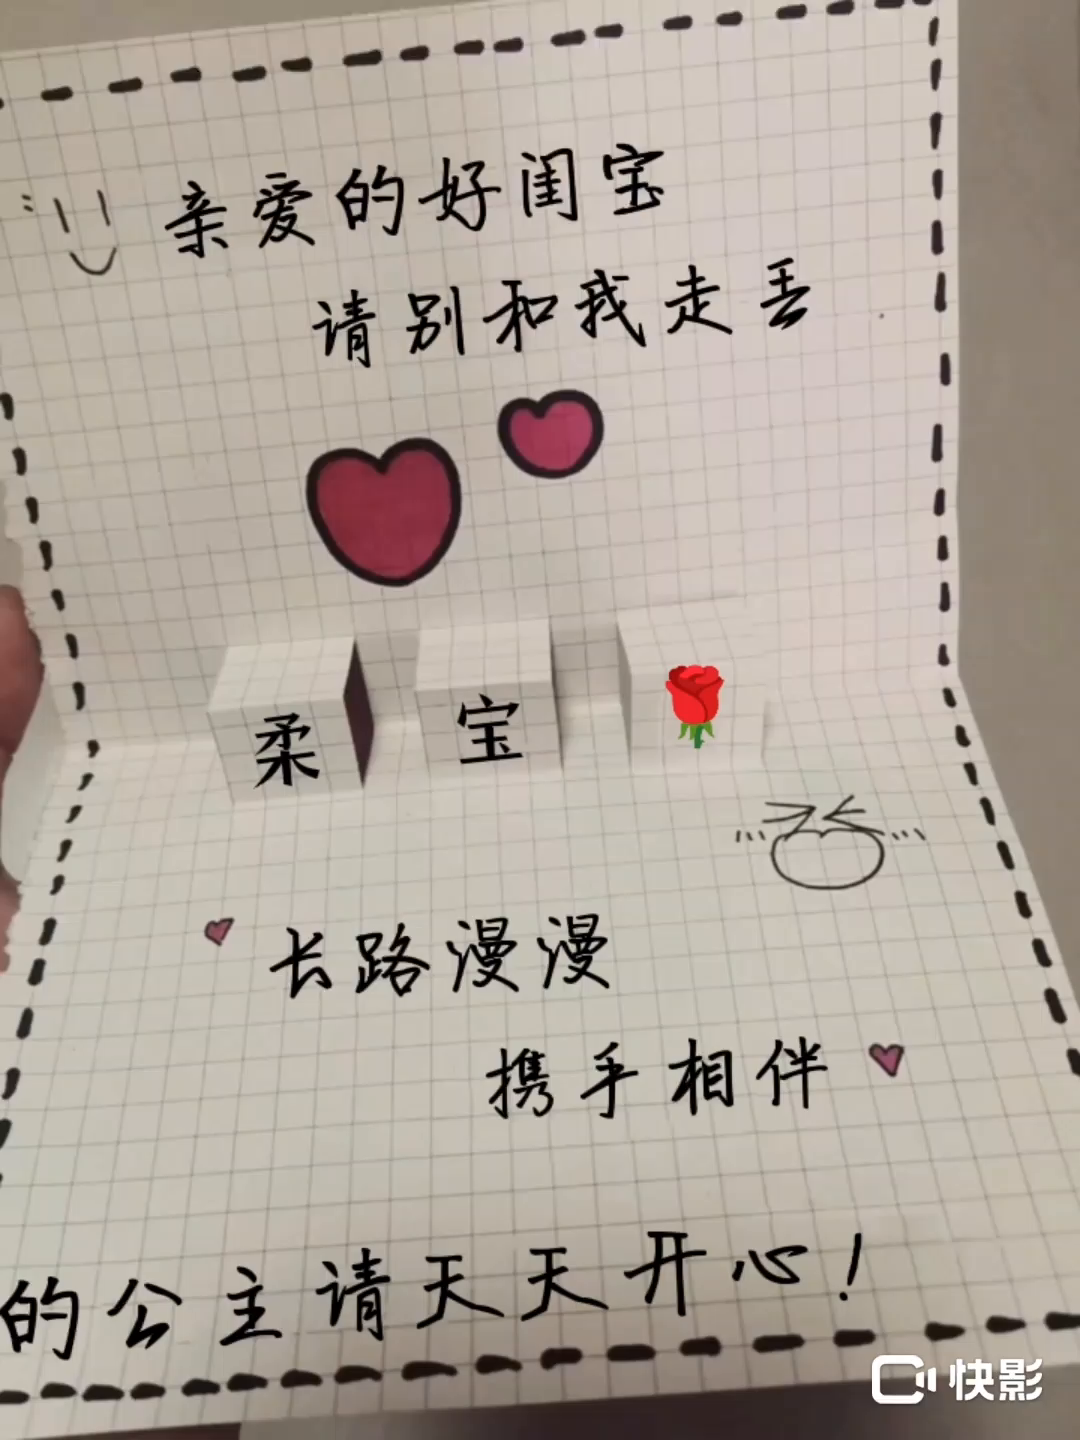 亲爱的好闺宝
请别和我走丢
柔 宝
长路漫漫
携手相伴
的公主请天天开心!
快影